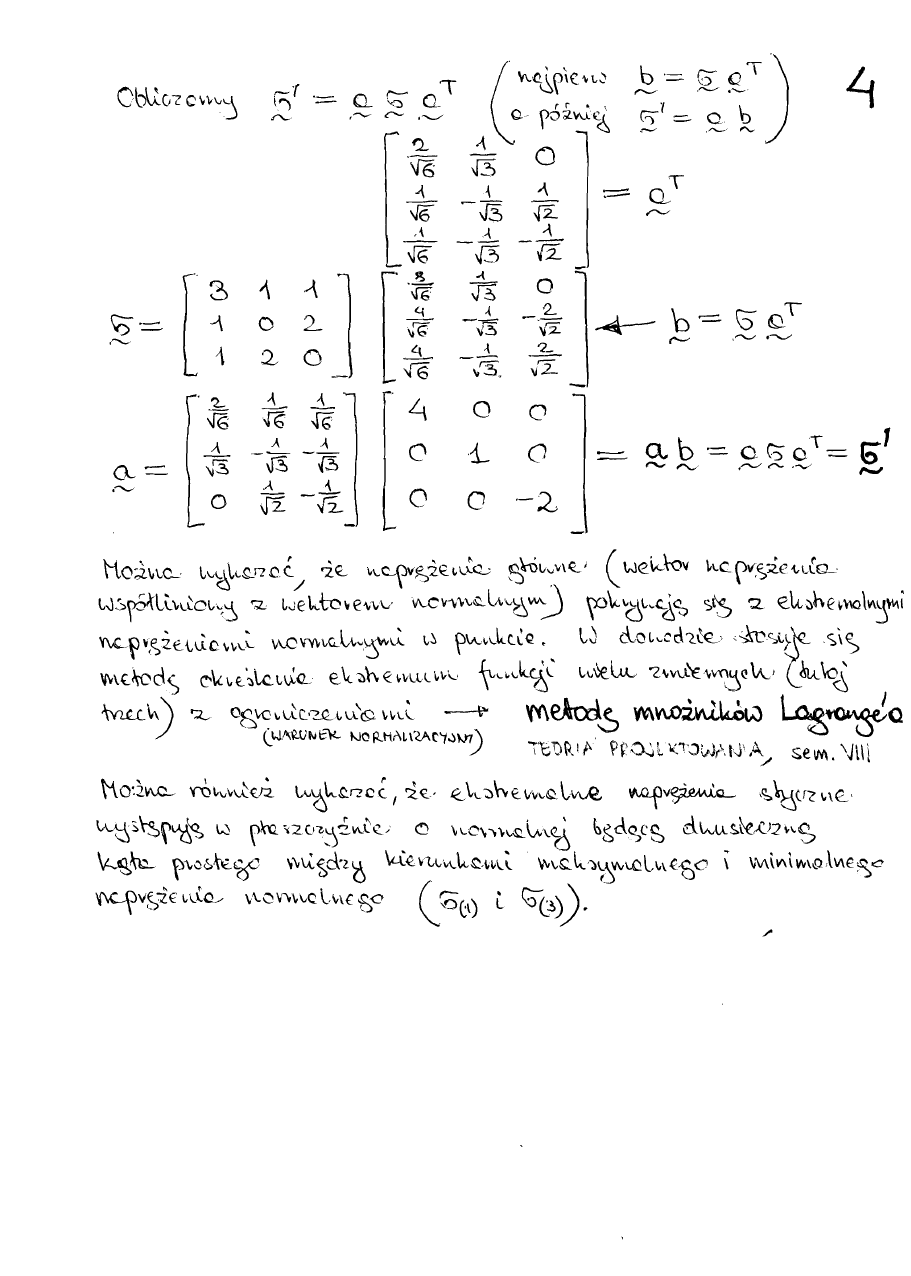 Obliczamy σ' = a σ aᵀ (najpierw b = σ aᵀ 4
a później σ' = a b)
[ 2/√6 1/√3 0 ]
[ 1/√6 -1/√3 1/√2 ] = aᵀ
[ 1/√6 -1/√3 -1/√2 ]
[ 3 1 1 ] [ 8/√6 1/√3 0 ]
σ = [ 1 0 2 ] [ 4/√6 -1/√3 -2/√2 ] ← b = σ aᵀ
[ 1 2 0 ] [ 4/√6 -1/√3 2/√2 ]
[ 2/√6 1/√6 1/√6 ] [ 4 0 0 ]
a = [ 1/√3 -1/√3 -1/√3 ] [ 0 1 0 ] = a b = a σ aᵀ = σ'
[ 0 1/√2 -1/√2 ] [ 0 0 -2 ]
Można wykazać, że naprężenia główne (wektor naprężenia
współliniowy z wektorem normalnym) pokrywają się z ekstremalnymi
naprężeniami normalnymi w punkcie. W dowodzie stosuje się
metodę określania ekstremum funkcji wielu zmiennych (tutaj
trzech) z ograniczeniami → metodę mnożników Lagrange'a
(WARUNEK NORMALIZACYJNY) TEORIA PROJEKTOWANIA, sem. VIII
Można również wykazać, że ekstremalne naprężenia styczne
występują w płaszczyźnie o normalnej będącą dwusieczną
kąta prostego między kierunkami maksymalnego i minimalnego
naprężenia normalnego (σ(1) i σ(3)).